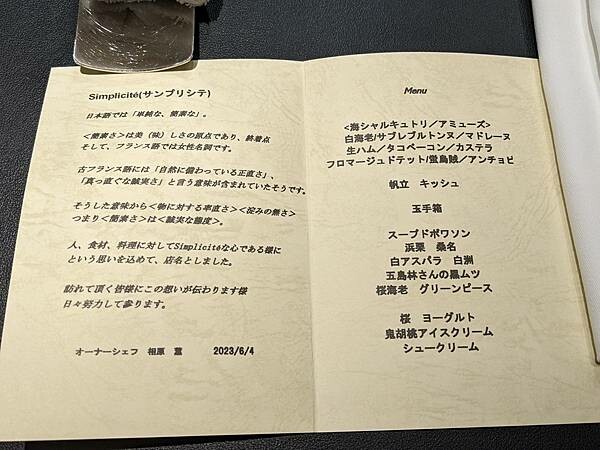 Simplicité(サンプリシテ)
日本語では「単純な、簡素な」。
＜簡素さ＞は美（味）しさの原点であり、終着点
そして、フランス語では女性名詞です。
古フランス語には「自然に備わっている正直さ」、
「真っ直ぐな誠実さ」と言う意味が含まれていたそうです。
そうした意味から＜物に対する率直さ＞＜淀みの無さ＞
つまり＜簡素さ＞は＜誠実な態度＞。
人、食材、料理に対してSimplicitéな心である様に
という思いを込めて、店名としました。
訪れて頂く皆様にこの想いが伝わります様
日々努力して参ります。
オーナーシェフ　相原　薫　2023/6/4
Menu
＜海シャルキュトリ／アミューズ＞
白海老/サブレブルトンヌ／マドレーヌ
生ハム／タコベーコン／カステラ
フロマージュドテット/蛍烏賊／アンチョビ
帆立　キッシュ
玉手箱
スープドポワソン
浜栗　桑名
白アスパラ　白洲
五島林さんの黒ムツ
桜海老　グリーンピース
桜　ヨーグルト
鬼胡桃アイスクリーム
シュークリーム